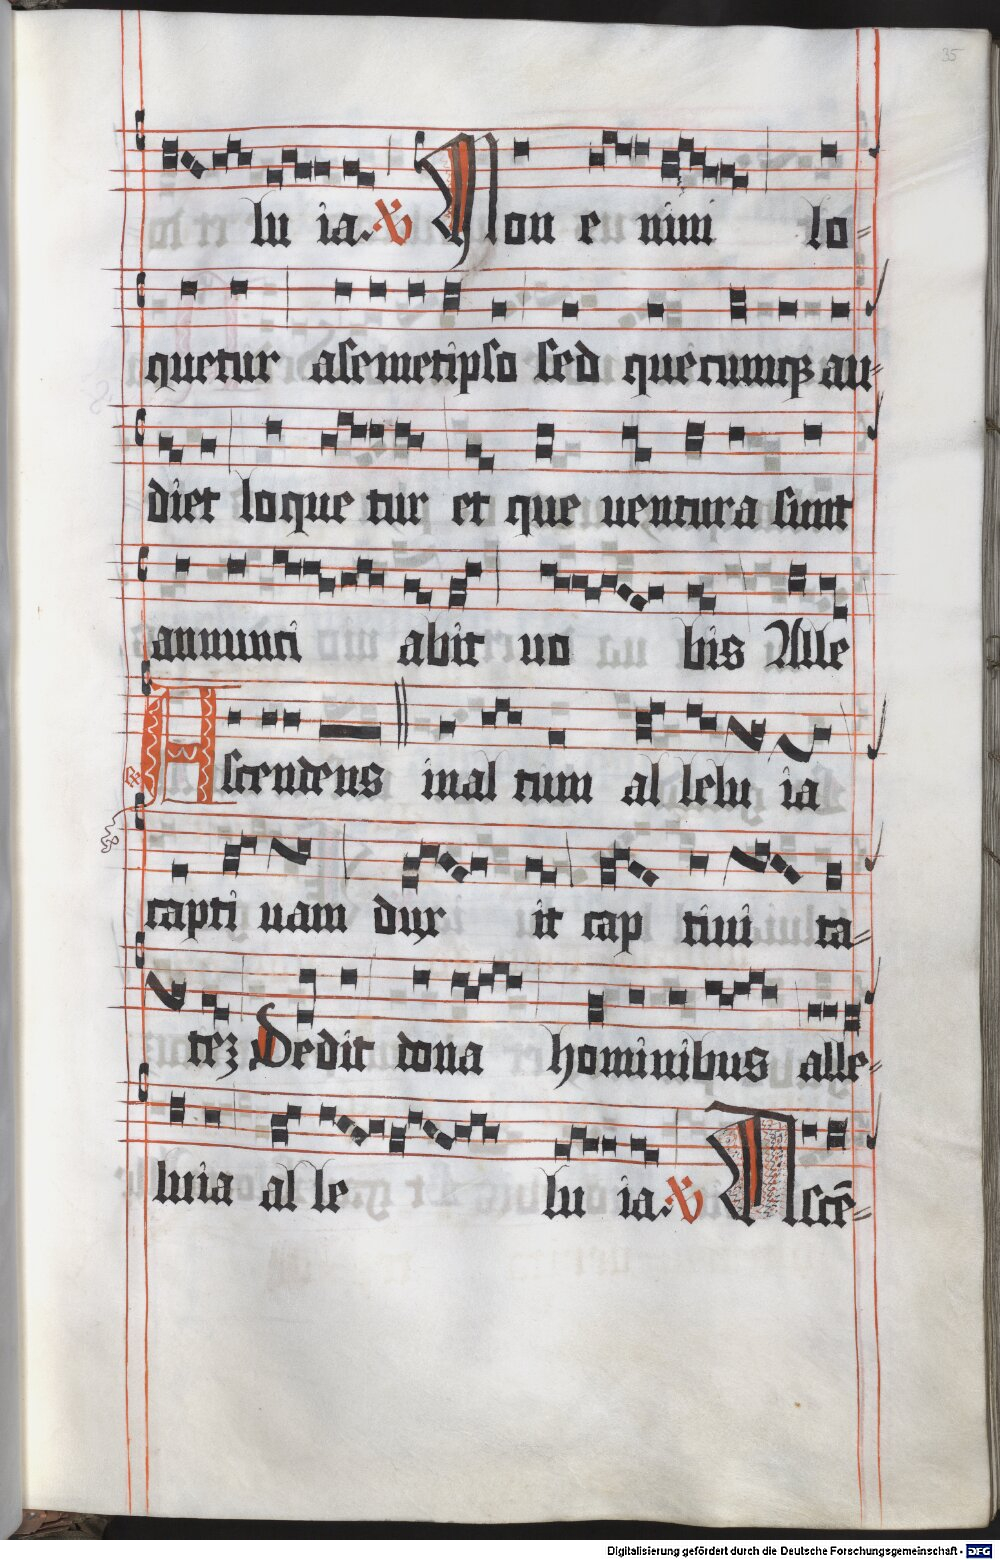 35
lu ia. V Non e nim lo=
quetur asemetipso sed quecumqꝫ au=
diet loque tur et que uentura sunt
annunci abit uo bis Alle
Ascendens inal tum al lelu ia
capti uam dux it cap tiui ta=
teʒ Dedit dona hominibus alle=
luia al le lu ia: V Ascē=
Digitalisierung gefördert durch die Deutsche Forschungsgemeinschaft - DFG